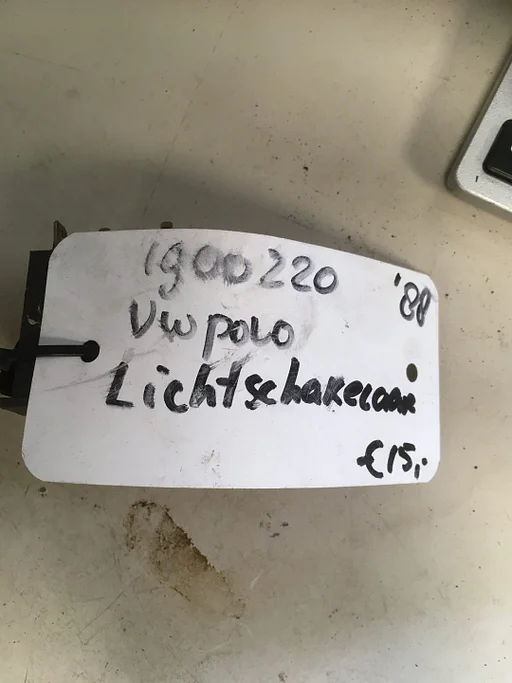 1900220
'88
VW polo
Lichtschakelaar
€15,-